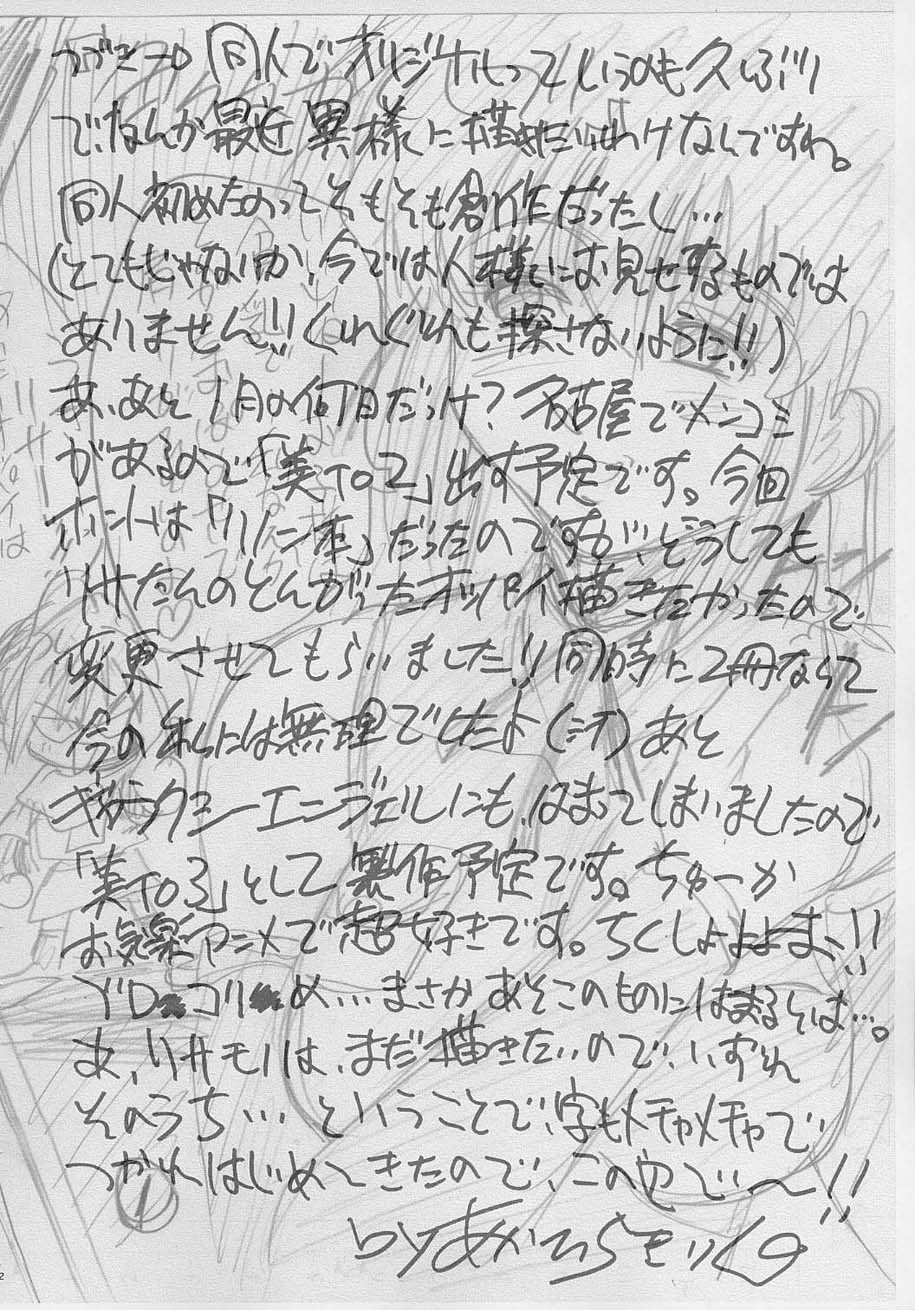 つづき→ 同人でオリジナルっていうのも久しぶり
で、なんか最近異様に描きたいわけなんですわ。
同人初めたのってそもそも創作だったし…
(とてもじゃないが、今では人様にお見せするものでは
ありません!!くれぐれも探さないように!!)
あ、あと1月の何日だっけ?名古屋でメンコミ
があるので「美to2」出す予定です。今回
ホントは「リノン本」だったのですが、どうしても
リサたんのとんがったオッパイ描きたかったので
変更させてもらいました!!同時に2冊なんて
今の私には無理でしたよ(汗)あと
ギャラクシーエンジェルにも、はまってしまいましたので
「美to3」として製作予定です。ちゅーか
お気楽アニメで超好きです。ちくしょよよまぃ!!
ブロ コリ め…まさかあそこのものにはまるとは…。
あ、リサモノは、まだ描きたいので、いずれ
そのうち…ということで、字もメチャメチャで
つかれはじめてきたので、この辺で〜!!
by